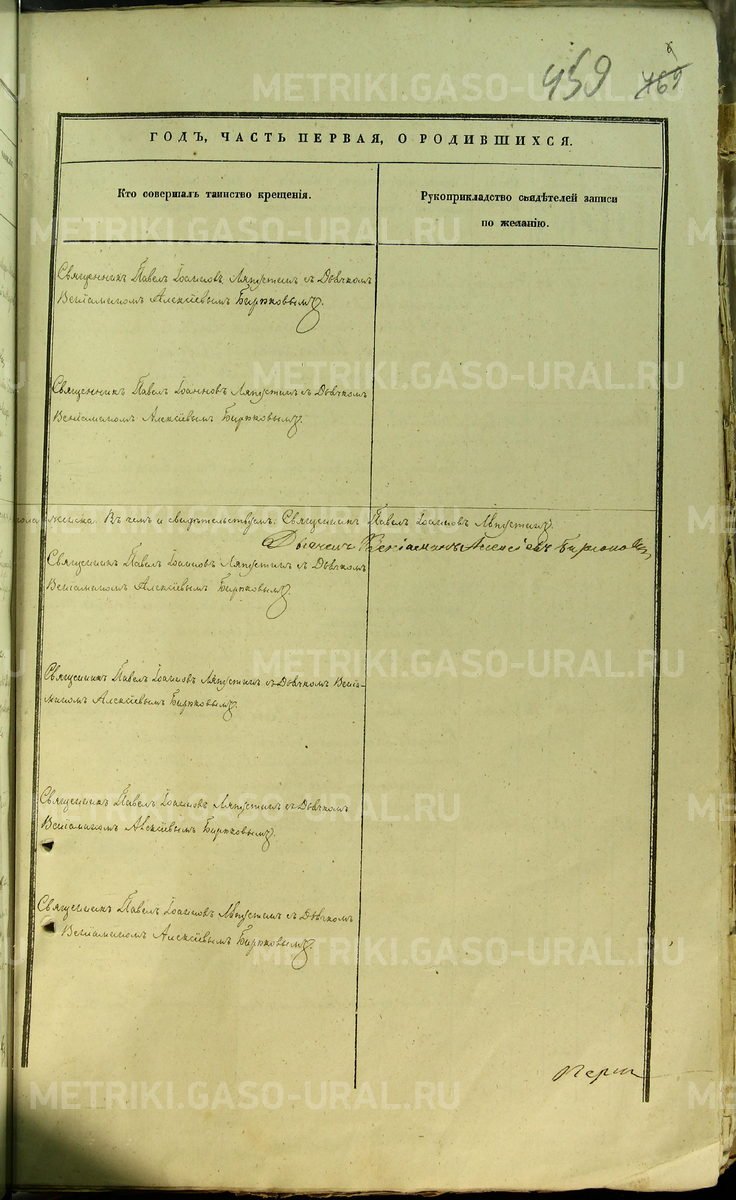 459 769
ГОДЪ, ЧАСТЬ ПЕРВАЯ, О РОДИВШИХСЯ.
Кто совершалъ таинство крещенія.
Рукоприкладство свидѣтелей записи
по желанію.
Священникъ Павелъ Іоанновъ Ляпустинъ съ Дьячкомъ
Веніаминомъ Алексѣевымъ Бирюковымъ.
Священникъ Павелъ Іоанновъ Ляпустинъ съ Дьячкомъ
Веніаминомъ Алексѣевымъ Бирюковымъ.
Въ чемъ и свидѣтельствуемъ: Священникъ Павелъ Іоанновъ Ляпустинъ.
Дьячекъ Веніаминъ Алексѣевъ Бирюковъ,
Священникъ Павелъ Іоанновъ Ляпустинъ съ Дьячкомъ
Веніаминомъ Алексѣевымъ Бирюковымъ.
Священникъ Павелъ Іоанновъ Ляпустинъ съ Дьячкомъ Веніа-
миномъ Алексѣевымъ Бирюковымъ.
Священникъ Павелъ Іоанновъ Ляпустинъ съ Дьячкомъ
Веніаминомъ Алексѣевымъ Бирюковымъ.
Священникъ Павелъ Іоанновъ Ляпустинъ съ Дьячкомъ
Веніаминомъ Алексѣевымъ Бирюковымъ.
METRIKI.GASO-URAL.RU